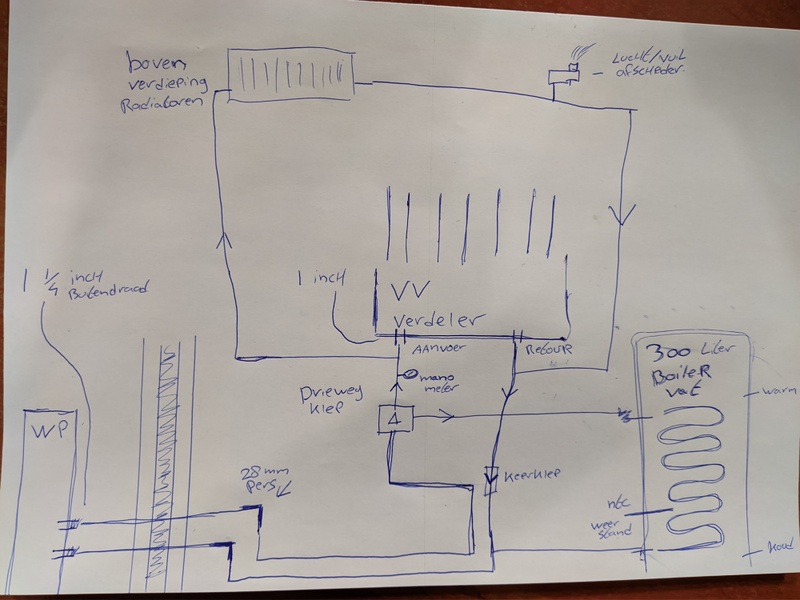 boven
verdieping
Radiatoren
Lucht/vuil
afscheider
1 1/4 inch
Buitendraad
1 inch
VV
Verdeler
AANVOER
Retour
mano
meter
Drieweg
Klep
300 Liter
BoileR
vat
warm
WP
28mm
Pers
Keerklep
ntc
weer
stand
koud